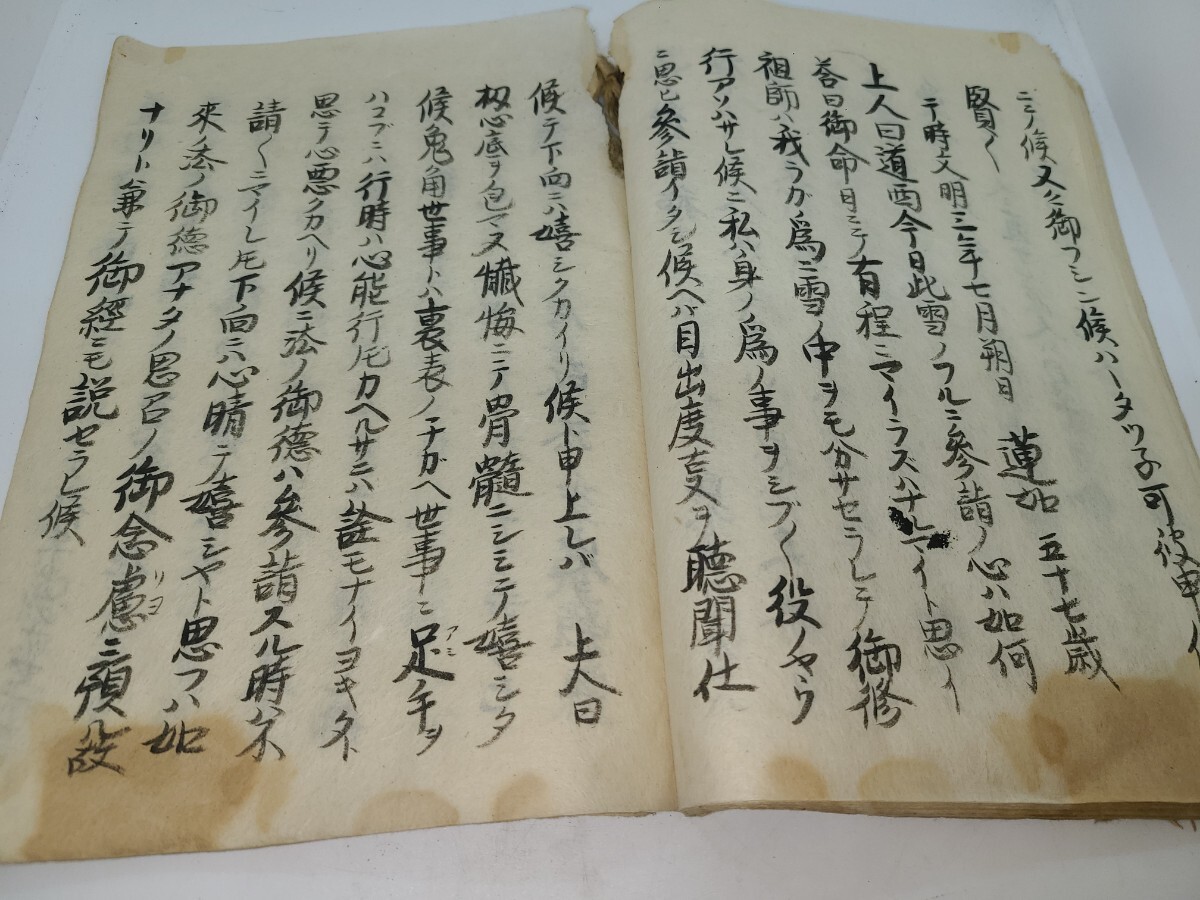 ニテ候又々御フシン候ハヽタツ子可被申候
賢〱
于時文明三年七月朔日 蓮如 五十七歳
上人曰道西今日此雪ノフルニ参詣ノ心ハ如何
答曰御命日ニテ有程ニマイラズハナルマイト思イ
祖師ハ我ラカ為ニ雪ノ中ヲモ分サセラレテ御修
行アソハサレ候ニ私ハ身ノ為ノ事ヲシブ〱役ノヤウ
ニ思ヒ参詣イタシ候ヘバ目出度古又ヲ聴聞仕
候テ下向ニハ嬉シクカイリ候ト申上レバ 上人曰
扨心底ヲ包マヌ懺悔ニテ骨髓ニシミテノ嬉シタ
候兎角世事トハ裏表ノチカヘ世事ニ足手ヲ
アミ
ハコブニハ行時ハ心能行尼カヘルサニハ詮モナイヨキタト
思テ心悪クカヘリ候ニ法ノ御徳ハ参詣スル時ハ不
請〱ニマイレ尼下向ニハ心晴テ嬉シヤト思フハ如
來ノ法ノ御徳アナタノ思召ノ御念慮ニ預故
リヨ
ナリト兼テ御經ニモ説セラレ候